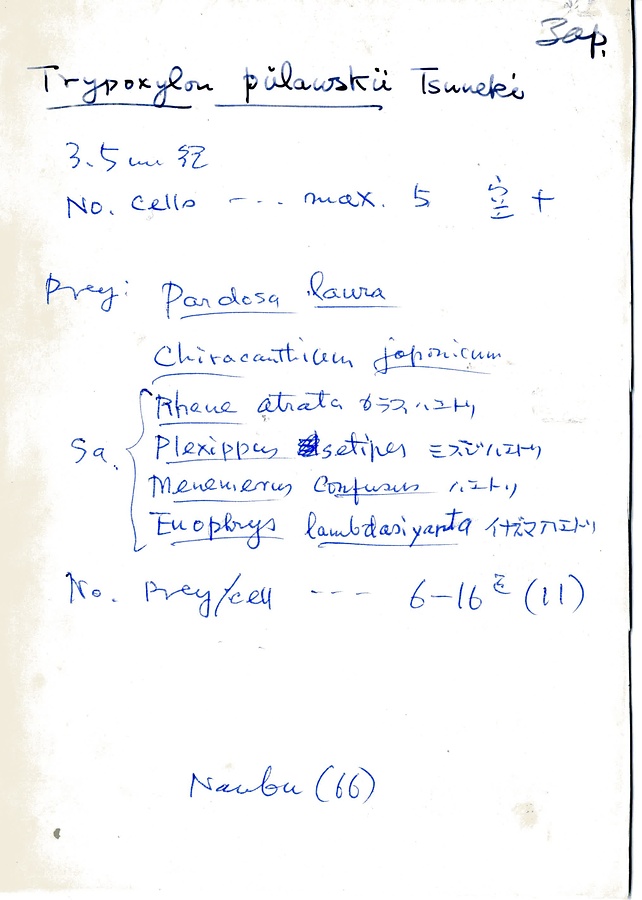 Jap.
Trypoxylon pulawskii Tsuneki
3.5 mm 径
No. cells --- max. 5 空 +
Prey: Pardosa laura
Chiracanthium japonicum
Rhene atrata カラスハエトリ
Sa. Plexippus setipes ミスジハエトリ
Menemerus confusus ハエトリ
Euophrys
No. Prey/cell --- 6-16 (11)
Nambu (66)